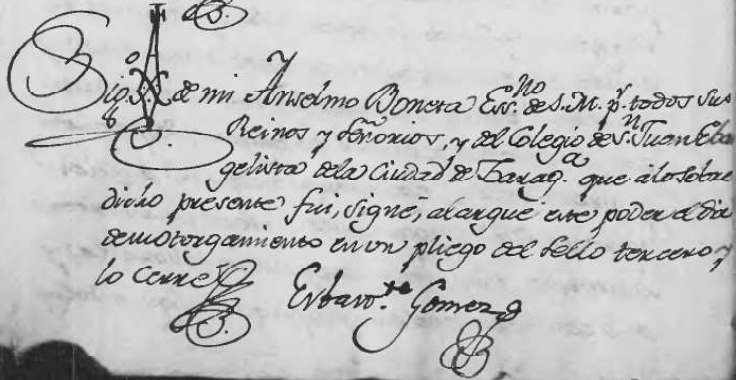 Sig.º de mi Anselmo Boneta Ess.no de S.M. p.r todos sus
Reinos y Señorios, y del Colegio de S.n Juan Eban
gelista dela Ciudad de Zarag.a que álo sobre
dicho presente fui, signé, alargué este poder el dia
de su otorgamiento en un pliego del sello tercero y
lo Cerré
Gomez